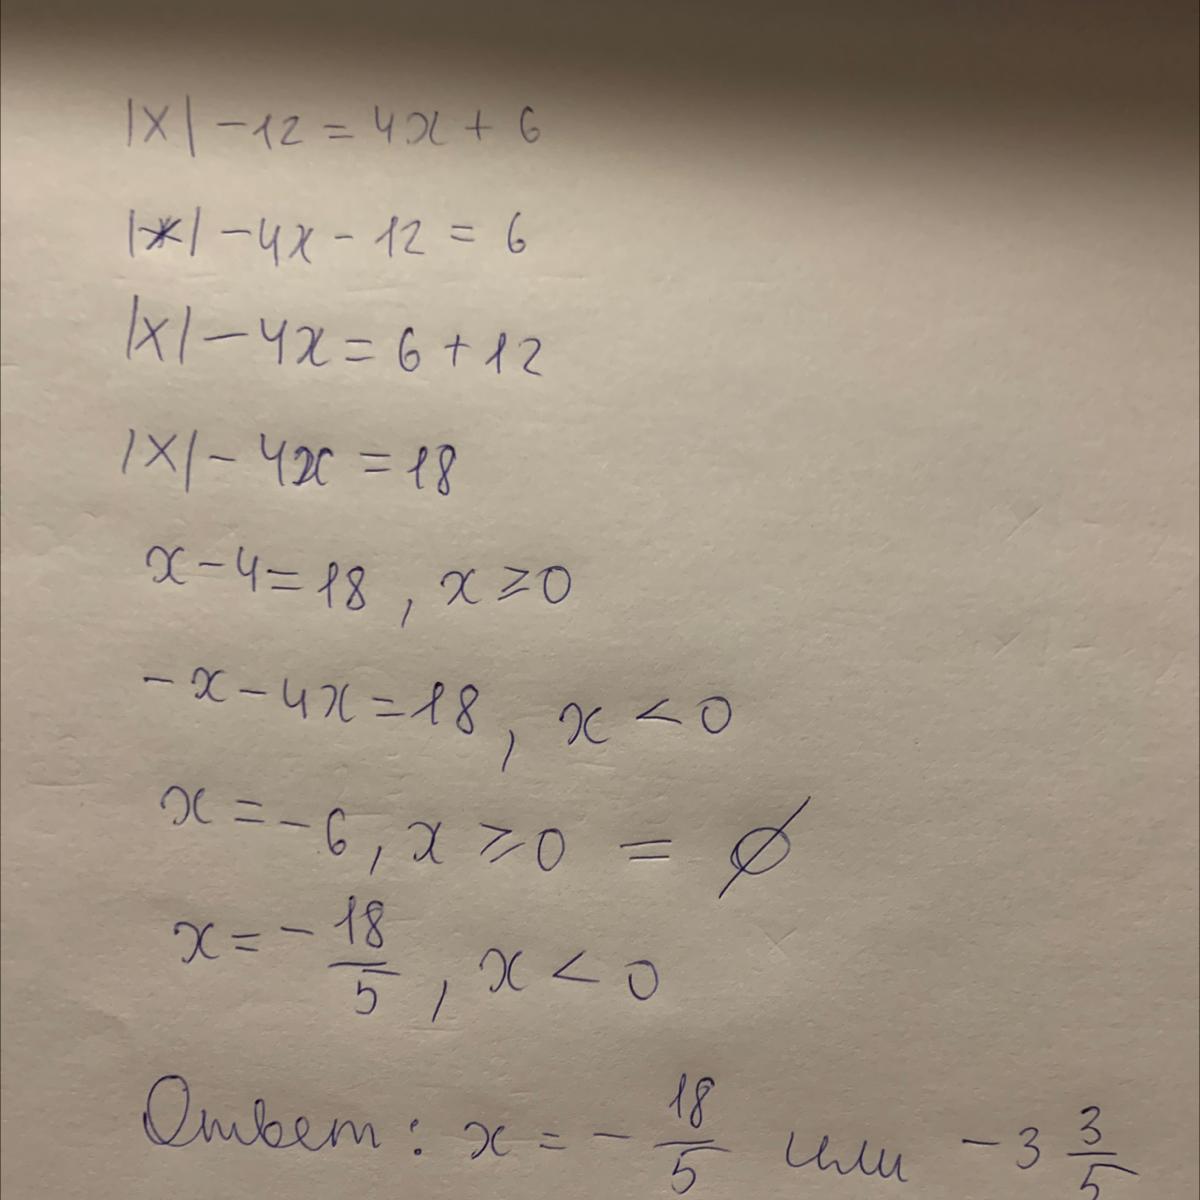 |x| - 12 = 4x + 6
|x| - 4x - 12 = 6
|x| - 4x = 6 + 12
|x| - 4x = 18
x - 4 = 18, x ≥ 0
- x - 4x = 18, x < 0
x = - 6, x ≥ 0 = ∅
x = - 18/5, x < 0
Ответ: x = - 18/5 или - 3 3/5